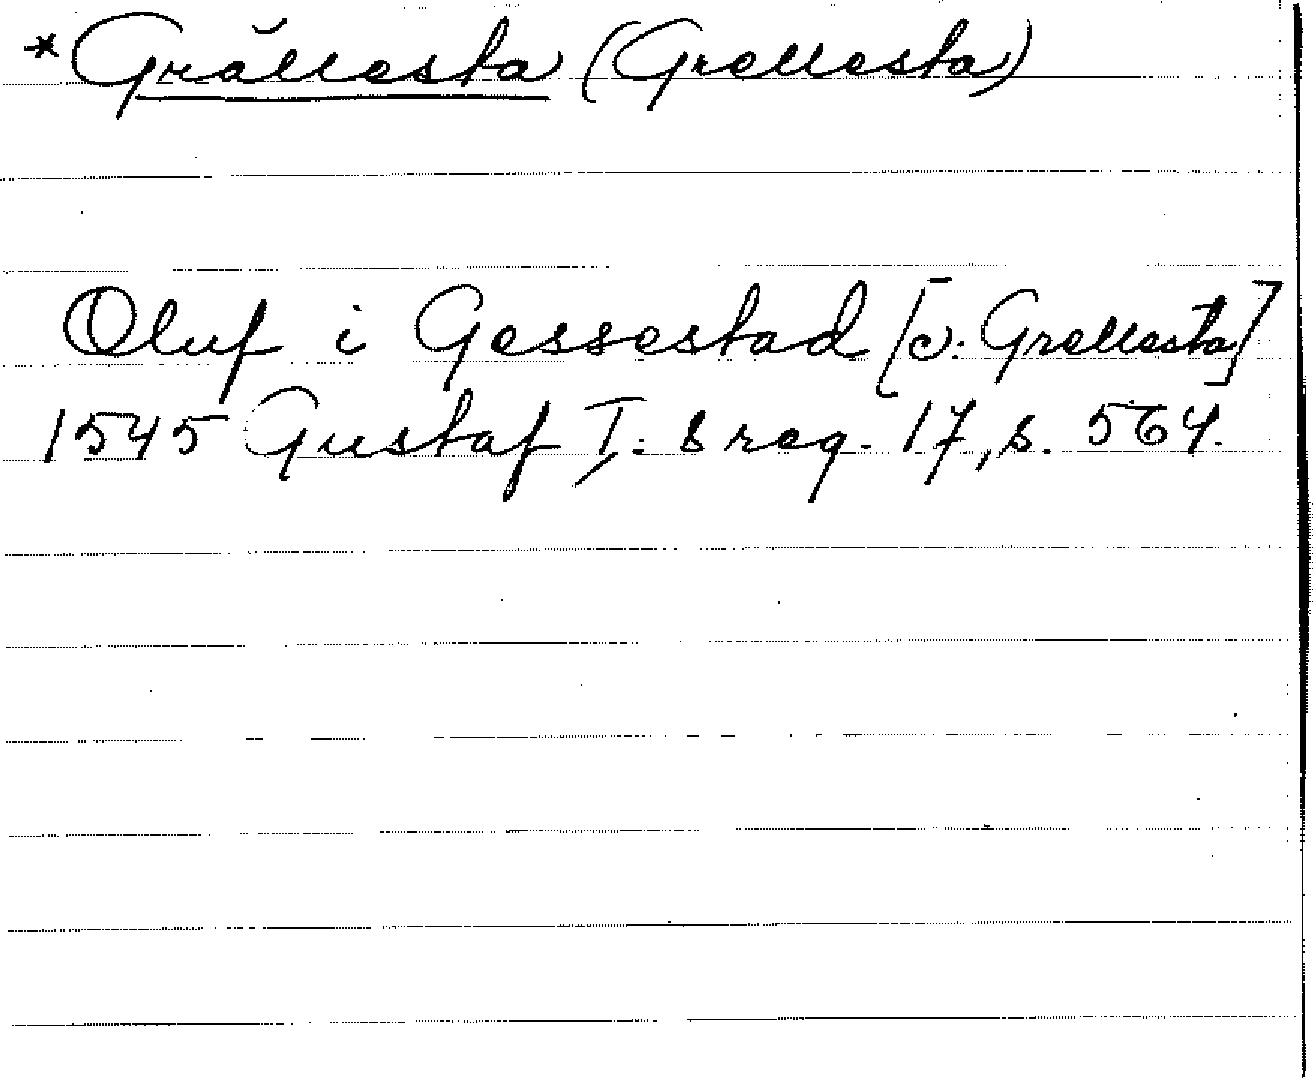 *Grällesta (Grellesta)
Oluf i Gessestad [v. Grellesta]
1545 Gustaf I:s reg. 17, s. 564.